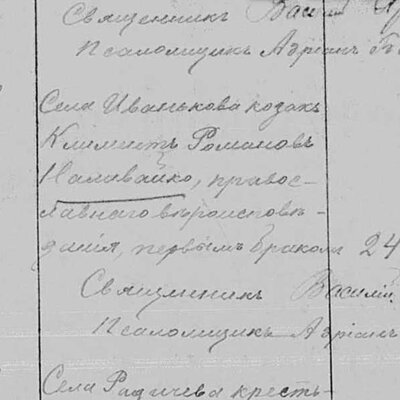 Священникъ Василій
Псаломщикъ Адріанъ
Села Иванькова козакъ
Климентъ Романовъ
Наливайко, право-
славнаго вѣроисповѣ-
данія, первымъ бракомъ 24
Священникъ Василій
Псаломщикъ Адріанъ
Села Радичева кресть-